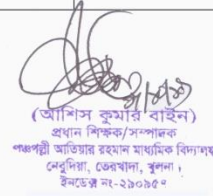 (আশিস কুমার বাইন)
প্রধান শিক্ষক/সম্পাদক
পঞ্চপল্লী আতিয়ার রহমান মাধ্যমিক বিদ্যালয়
নেবুদিয়া, তেরখাদা, খুলনা।
ইনডেক্স নং-২৯০৯৫৭